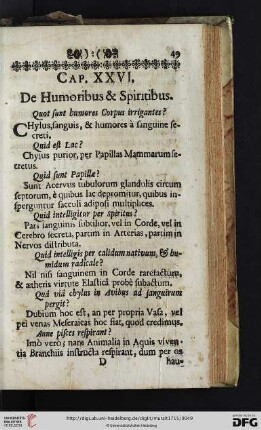 49
CAP. XXVI.
De Humoribus & Spiritibus.
Quot sunt humores Corpus irrigantes?
CHylus, sanguis, & humores à sanguine se-
creti.
Quid est Lac?
Chylus purior, per Papillas Mammarum se-
cretus.
Quid sunt Papillæ?
Sunt Acervus tubulorum glandulis circum
septorum, è quibus lac depromitur, quibus in-
sperguntur sacculi adiposi multiplices.
Quid intelligitur per spiritus?
Pars sanguinis subtilior, vel in Corde, vel in
Cerebro secreta, partim in Arterias, partim in
Nervos distributa.
Quid intelligis per calidum nativum, & hu-
midum radicale?
Nil nisi sanguinem in Corde rarefactum,
& ætheris virtute Elastica probè subactum.
Quâ viâ chylus in Avibus ad sanguinem
pergit?
Dubium hoc est, an per propria Vasa, vel
per venas Meseraicas hoc fiat, quod credimus.
Anne pisces respirant?
Imò verò; nam Animalia in Aquis viven-
tia Branchiis instructa respirant, dum per os
D
hau-
http://digi.ub.uni-heidelberg.de/diglit/muralt1715/0049
© Universitätsbibliothek Heidelberg
DFG